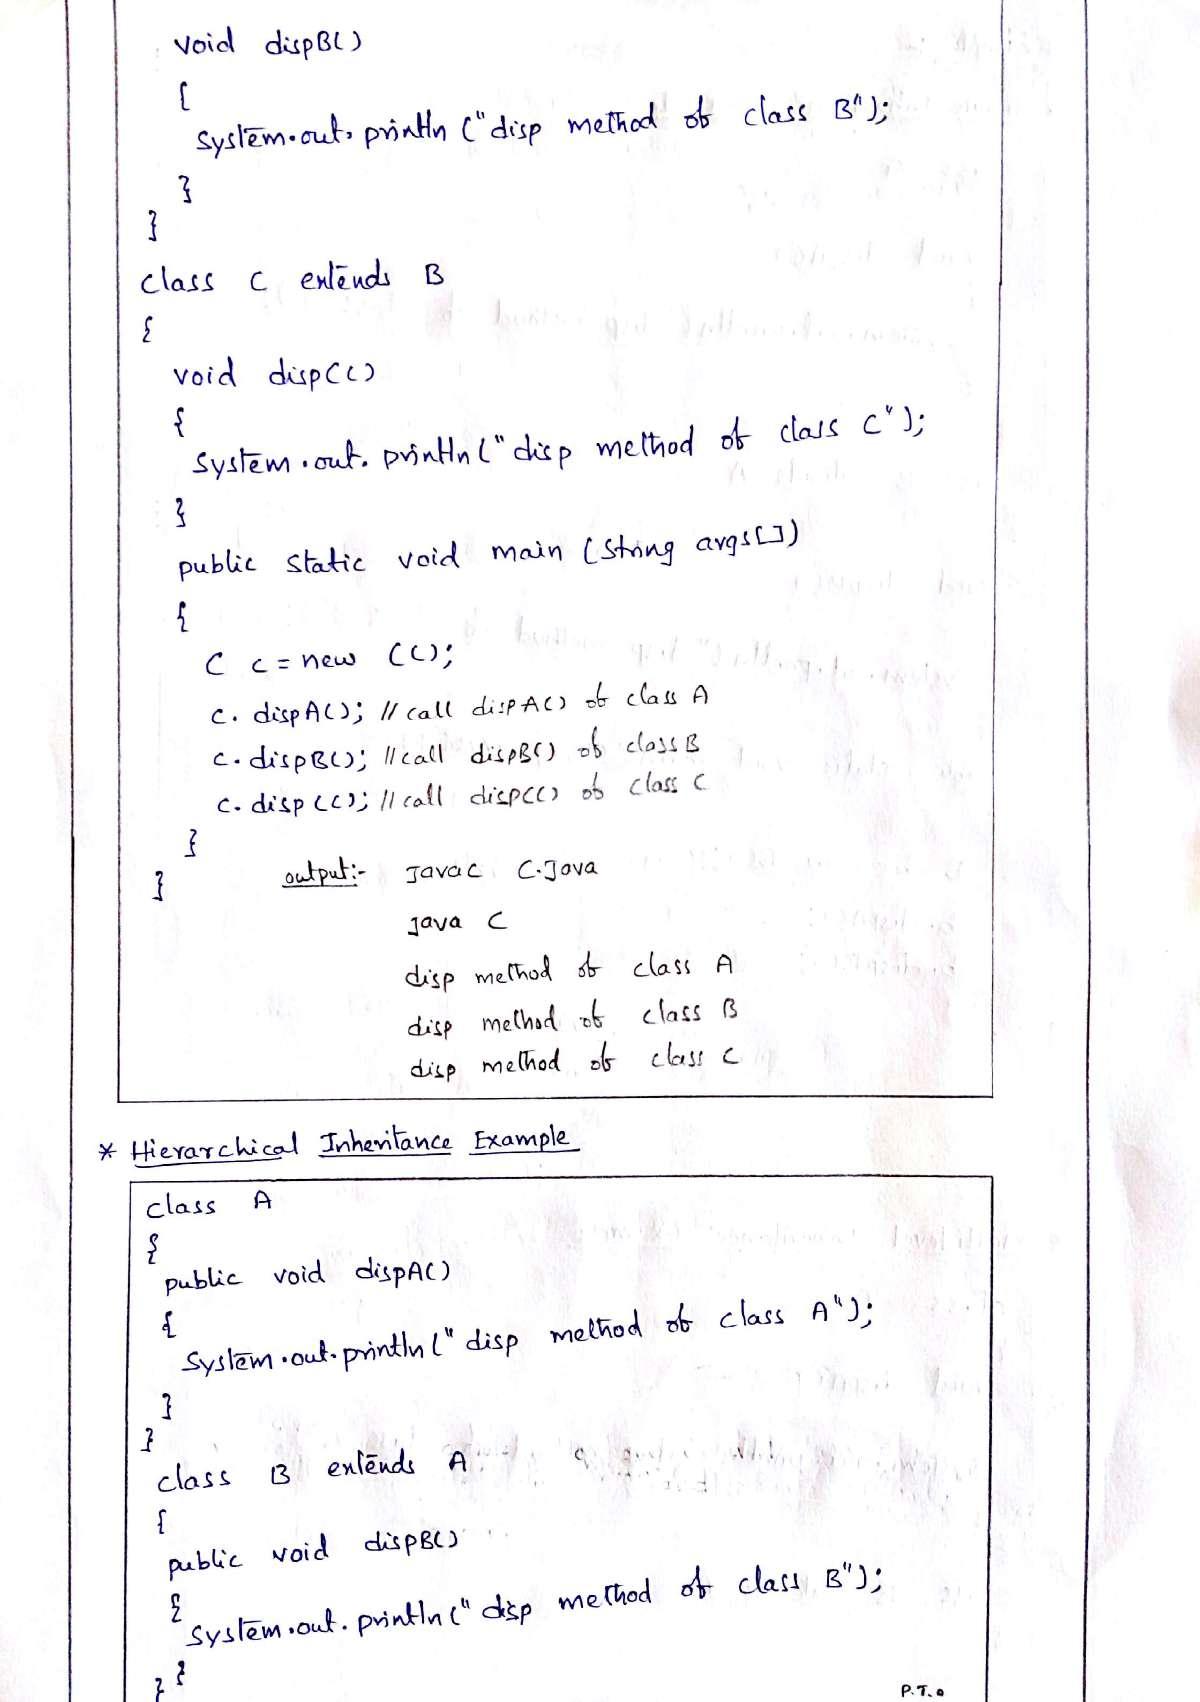 void dispB()
{
System.out.println ("disp method of class B");
}
}
class C extends B
{
void dispC()
{
System.out.println("disp method of class C");
}
public static void main (String args[])
{
C c = new C();
c. dispA(); // call dispA() of class A
c. dispB(); // call dispB() of class B
c. dispC(); // call dispC() of class C
}
}
output:- Javac C.Java
Java C
disp method of class A
disp method of class B
disp method of class C
* Hierarchical Inheritance Example
class A
{
public void dispA()
{
System.out.println(" disp method of class A");
}
}
class B extends A
{
public void dispB()
{
System.out.println(" disp method of class B");
}
}
P.T.O